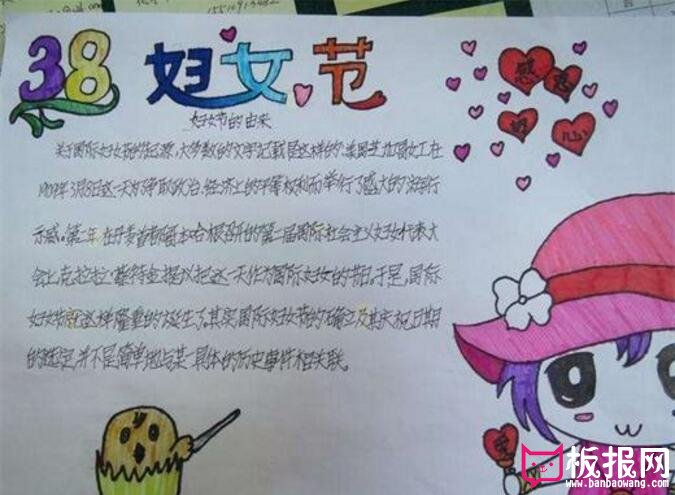 38 妇女节
妇女节的由来
感恩
的心
关于国际妇女节的起源,大多数的文字记载是这样的:美国芝加哥女工在
1909年3月8日这一天为争取政治、经济上的平等权利而举行了盛大的游行
示威。第二年,在丹麦首都哥本哈根召开的第二届国际社会主义妇女代表大
会上克拉拉·蔡特金提议把这一天作为国际妇女的节日。于是,国际
妇女节就这样隆重的诞生了。其实国际妇女节的确立及其庆祝日期
的选定,并不是简单地与某一具体的历史事件相关联。
爱
板报网
www.banbaowang.com